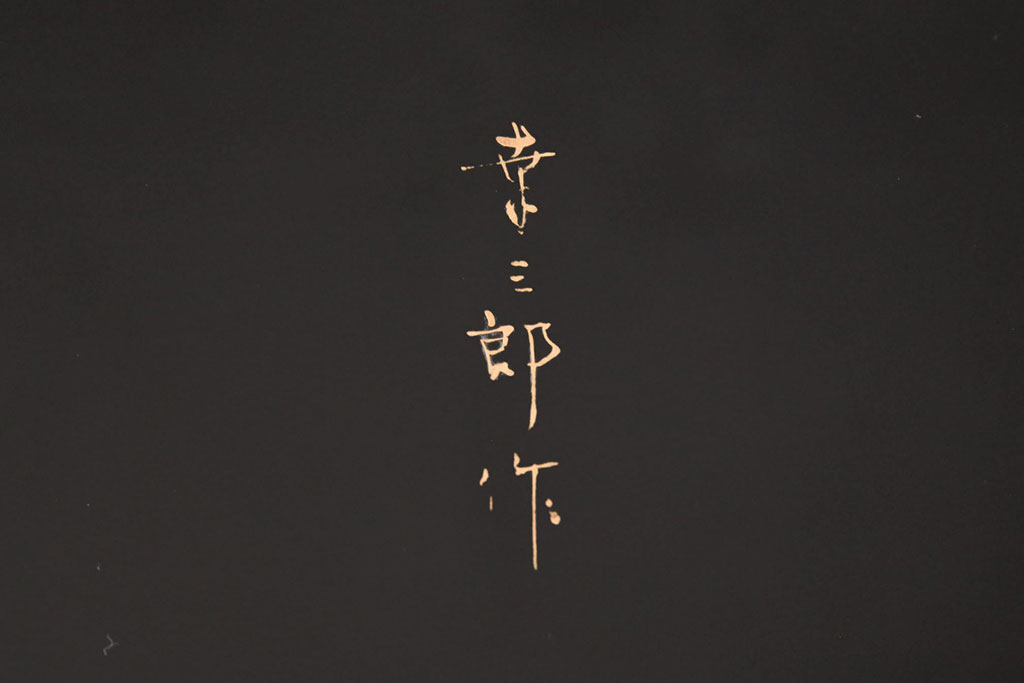 幸三郎作